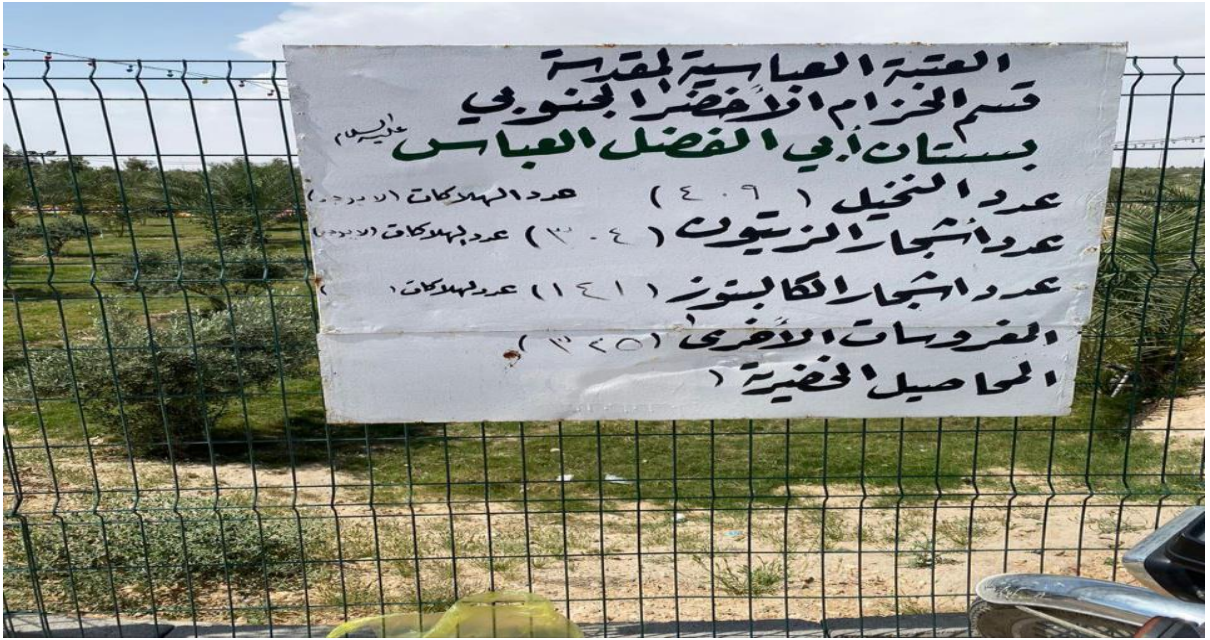 العتبة العباسية المقدسة
قسم الحزام الأخضر الجنوبي
بستان أبي الفضل العباس عليه السلام
عدد النخيل ( ٤٠٩ ) عدد الهلاكات (لا يوجد)
عدد أشجار الزيتون (٣٠٤) عدد الهلاكات (لا يوجد)
عدد اشجار الكالبتوز (١٤١) عدد الهلاكات ( )
المغروسات الأخرى (٣٢٥)
المحاصيل الخضرية (